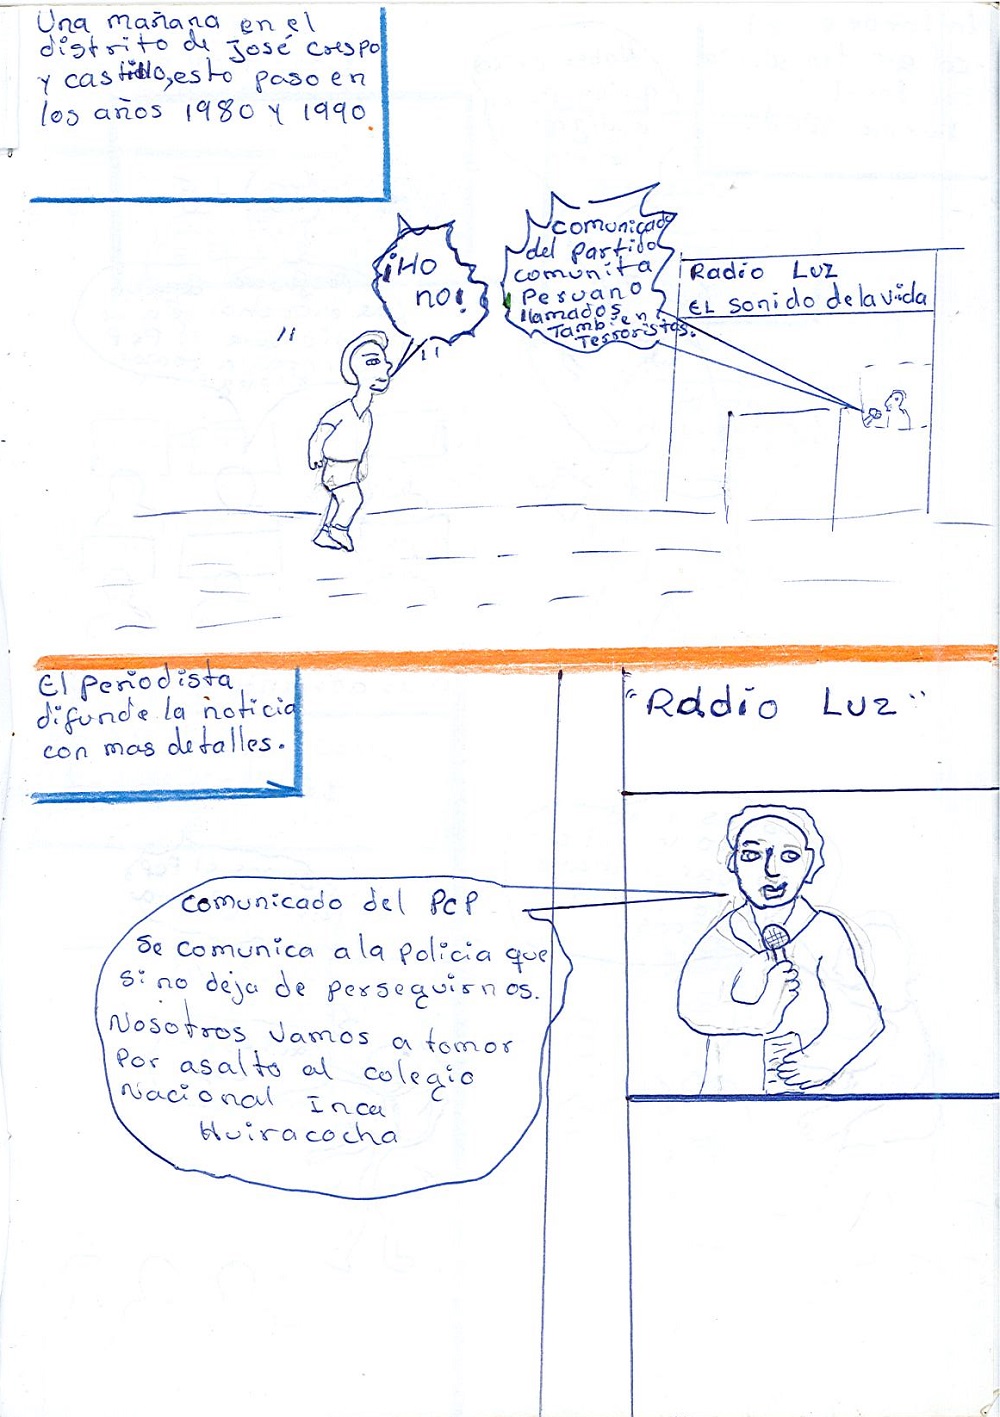 Una mañana en el
distrito de José Crespo
y castillo, esto paso en
los años 1980 y 1990.
¡Ho
no!
comunicado
del partido
comunita
Peruano
llamados
También
Terroristas.
Radio Luz
EL sonido de la vida
El periodista
difunde la noticia
con mas detalles.
"Radio Luz"
comunicado del PCP
Se comunica a la policia que
si no deja de perseguirnos.
Nosotros vamos a tomar
por asalto al colegio
Nacional Inca
Huiracocha